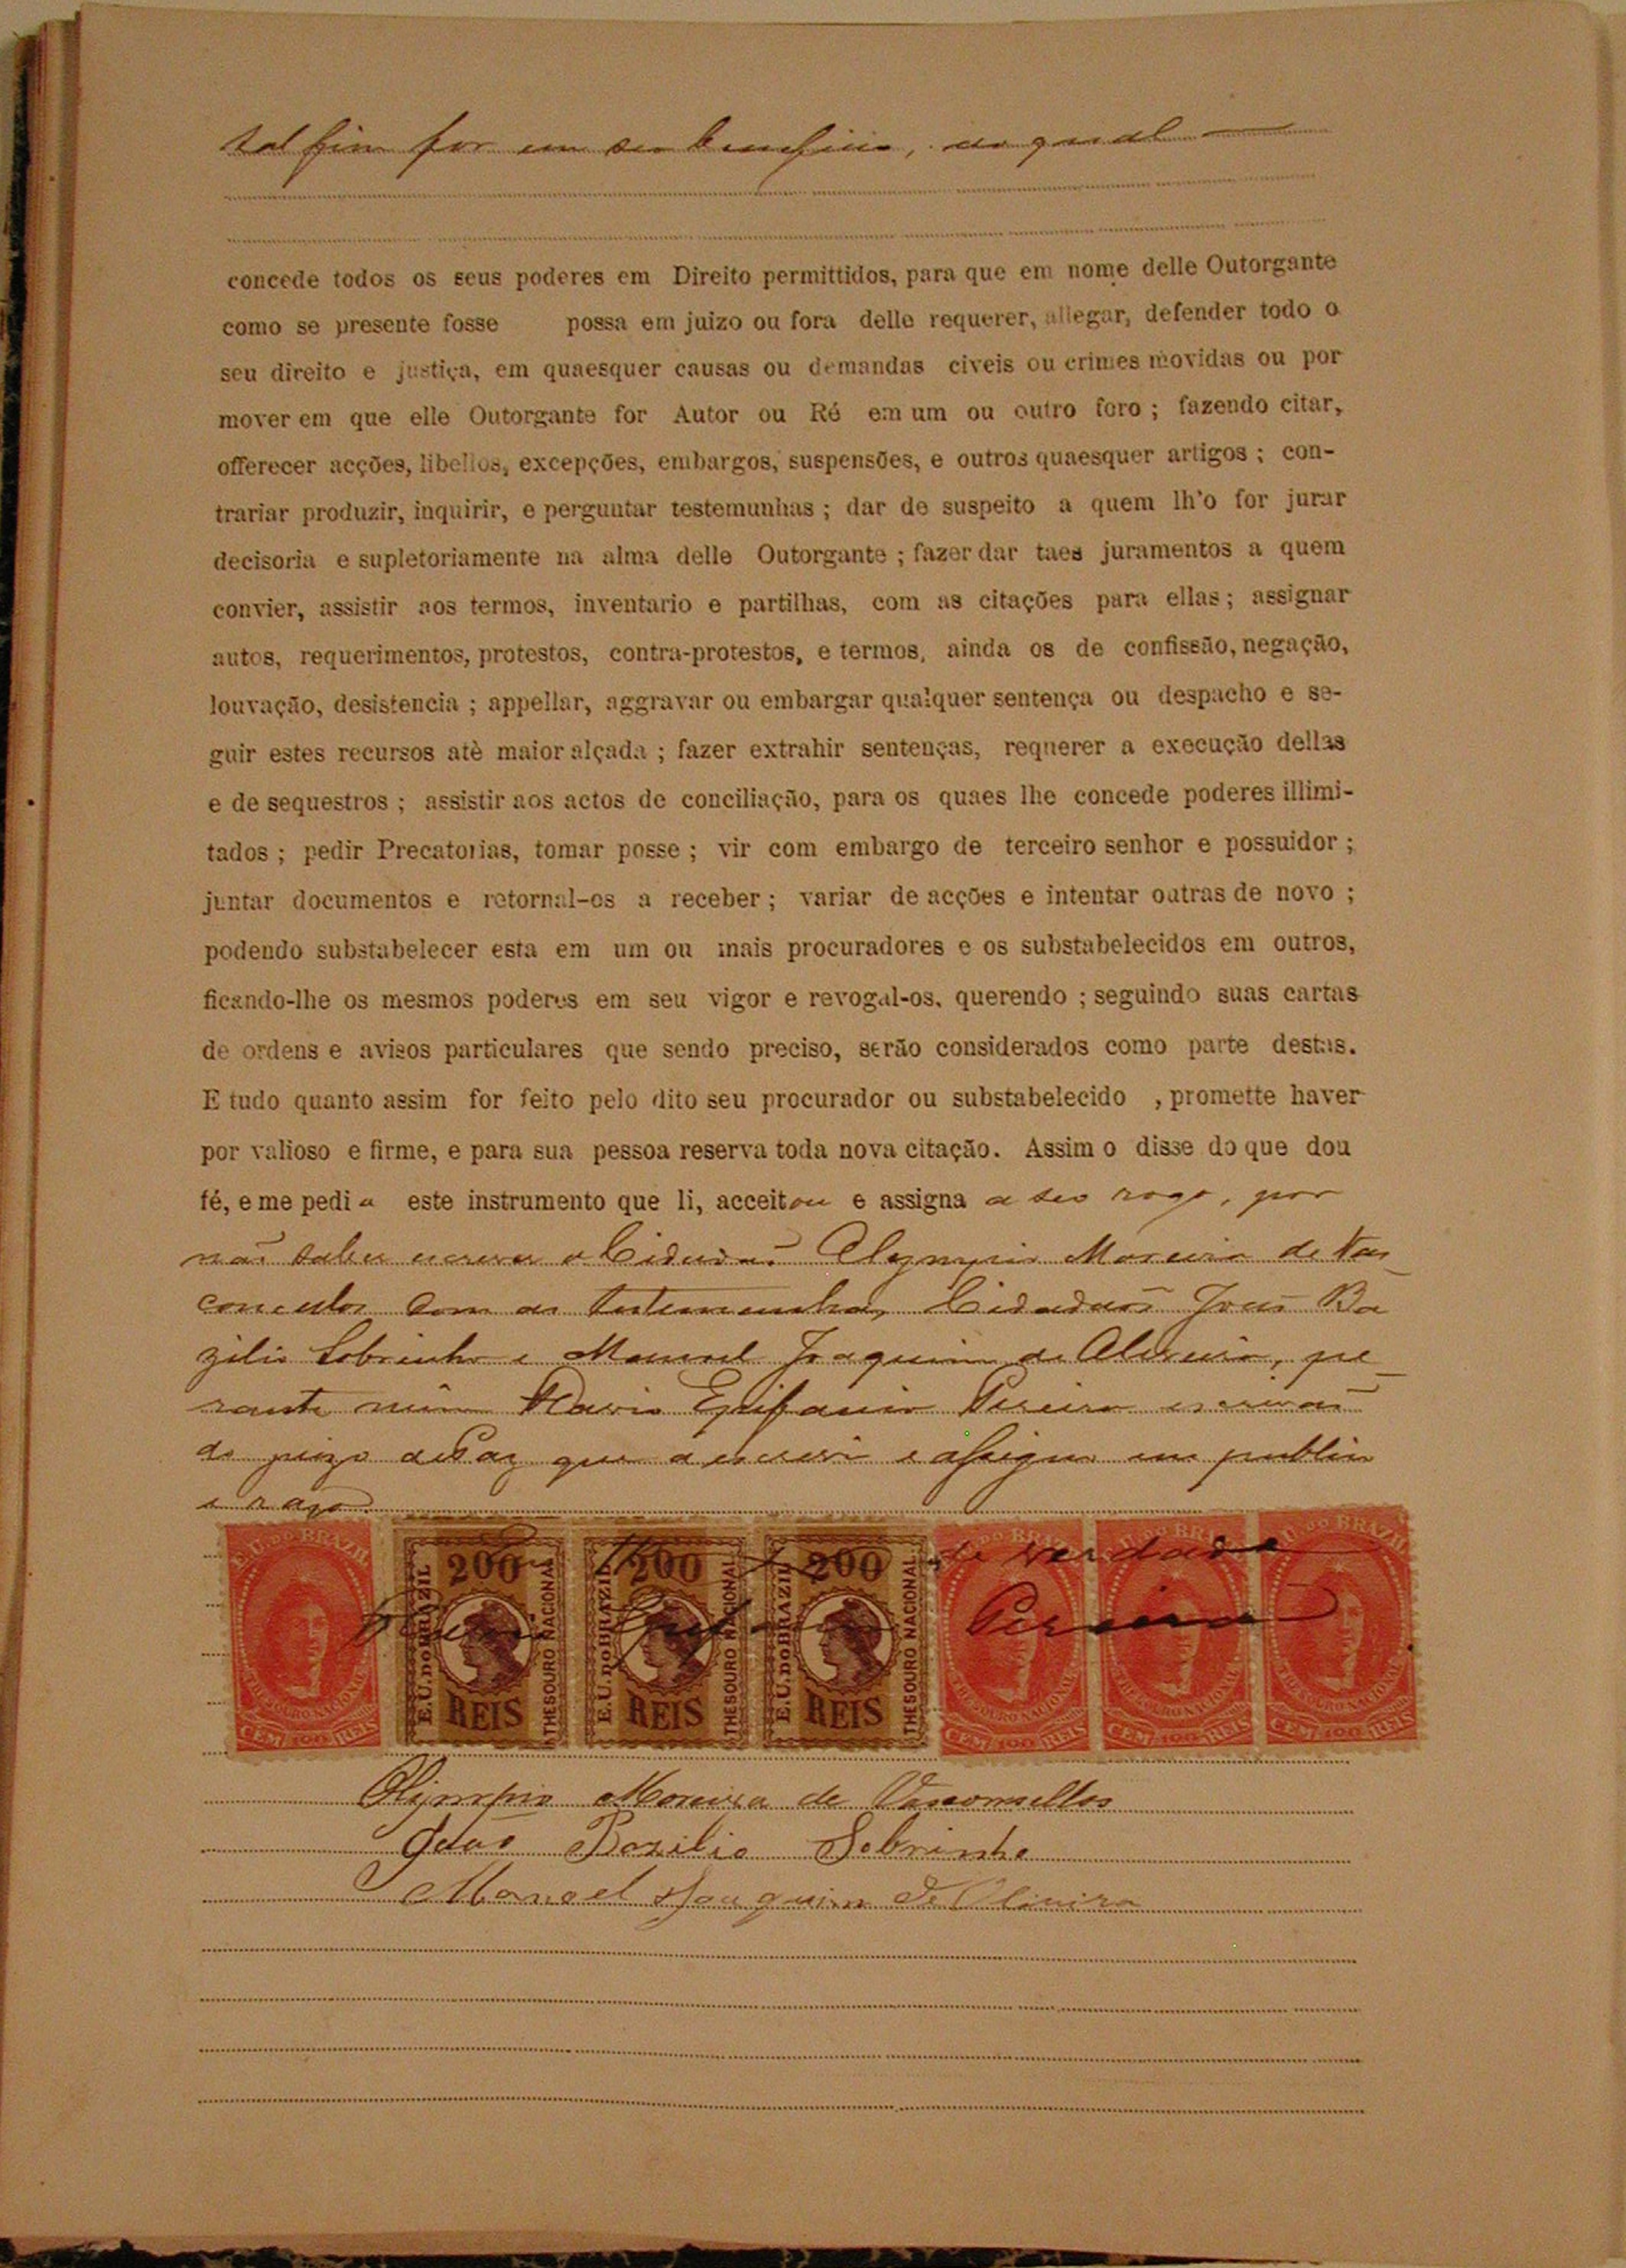 tal fim for em seu beneficio, ao qual
concede todos os seus poderes em Direito permittidos, para que em nome delle Outorgante
como se presente fosse possa em juizo ou fora delle requerer, allegar, defender todo o
seu direito e justiça, em quaesquer causas ou demandas civeis ou crimes movidas ou por
mover em que elle Outorgante for Autor ou Ré em um ou outro foro ; fazendo citar,
offerecer acções, libellos, excepções, embargos, suspensões, e outros quaesquer artigos ; con-
trariar produzir, inquirir, e perguntar testemunhas ; dar de suspeito a quem lh'o for jurar
decisoria e supletoriamente na alma delle Outorgante ; fazer dar taes juramentos a quem
convier, assistir aos termos, inventario e partilhas, com as citações para ellas ; assignar
autos, requerimentos, protestos, contra-protestos, e termos, ainda os de confissão, negação,
louvação, desistencia ; appellar, aggravar ou embargar qualquer sentença ou despacho e se-
guir estes recursos atè maior alçada ; fazer extrahir sentenças, requerer a execução dellas
e de sequestros ; assistir aos actos de conciliação, para os quaes lhe concede poderes illimi-
tados ; pedir Precatorias, tomar posse ; vir com embargo de terceiro senhor e possuidor ;
juntar documentos e retornal-os a receber ; variar de acções e intentar outras de novo ;
podendo substabelecer esta em um ou mais procuradores e os substabelecidos em outros,
ficando-lhe os mesmos poderes em seu vigor e revogal-os, querendo ; seguindo suas cartas
de ordens e avisos particulares que sendo preciso, serão considerados como parte destas.
E tudo quanto assim for feito pelo dito seu procurador ou substabelecido , promette haver
por valioso e firme, e para sua pessoa reserva toda nova citação. Assim o disse do que dou
fé, e me pedi a este instrumento que li, acceitou e assigna a seu rogo, por
não saber escrever o Cidadão Olympio Moreira de Vas
concellos com as testemunhas, Cidadãos João Ba
zilio Sobrinho e Manoel Joaquim de Oliveira, pe
rante mim Mario Epifanio Pereira escrivão
do juizo de Paz que a escrevi e assigno em publico
e razo.
E. U. DO BRAZIL THESOURO NACIONAL CEM 100 REIS
E. U. DO BRAZIL 200 REIS THESOURO NACIONAL
E. U. DO BRAZIL 200 REIS THESOURO NACIONAL
E. U. DO BRAZIL 200 REIS THESOURO NACIONAL
E. U. DO BRAZIL THESOURO NACIONAL CEM 100 REIS
E. U. DO BRAZIL THESOURO NACIONAL CEM 100 REIS
E. U. DO BRAZIL THESOURO NACIONAL CEM 100 REIS
de verdade
Pereira
Olympio Moreira de Vasconsellos
João Bazilio Sobrinho
Manoel Joaquim de Oliveira